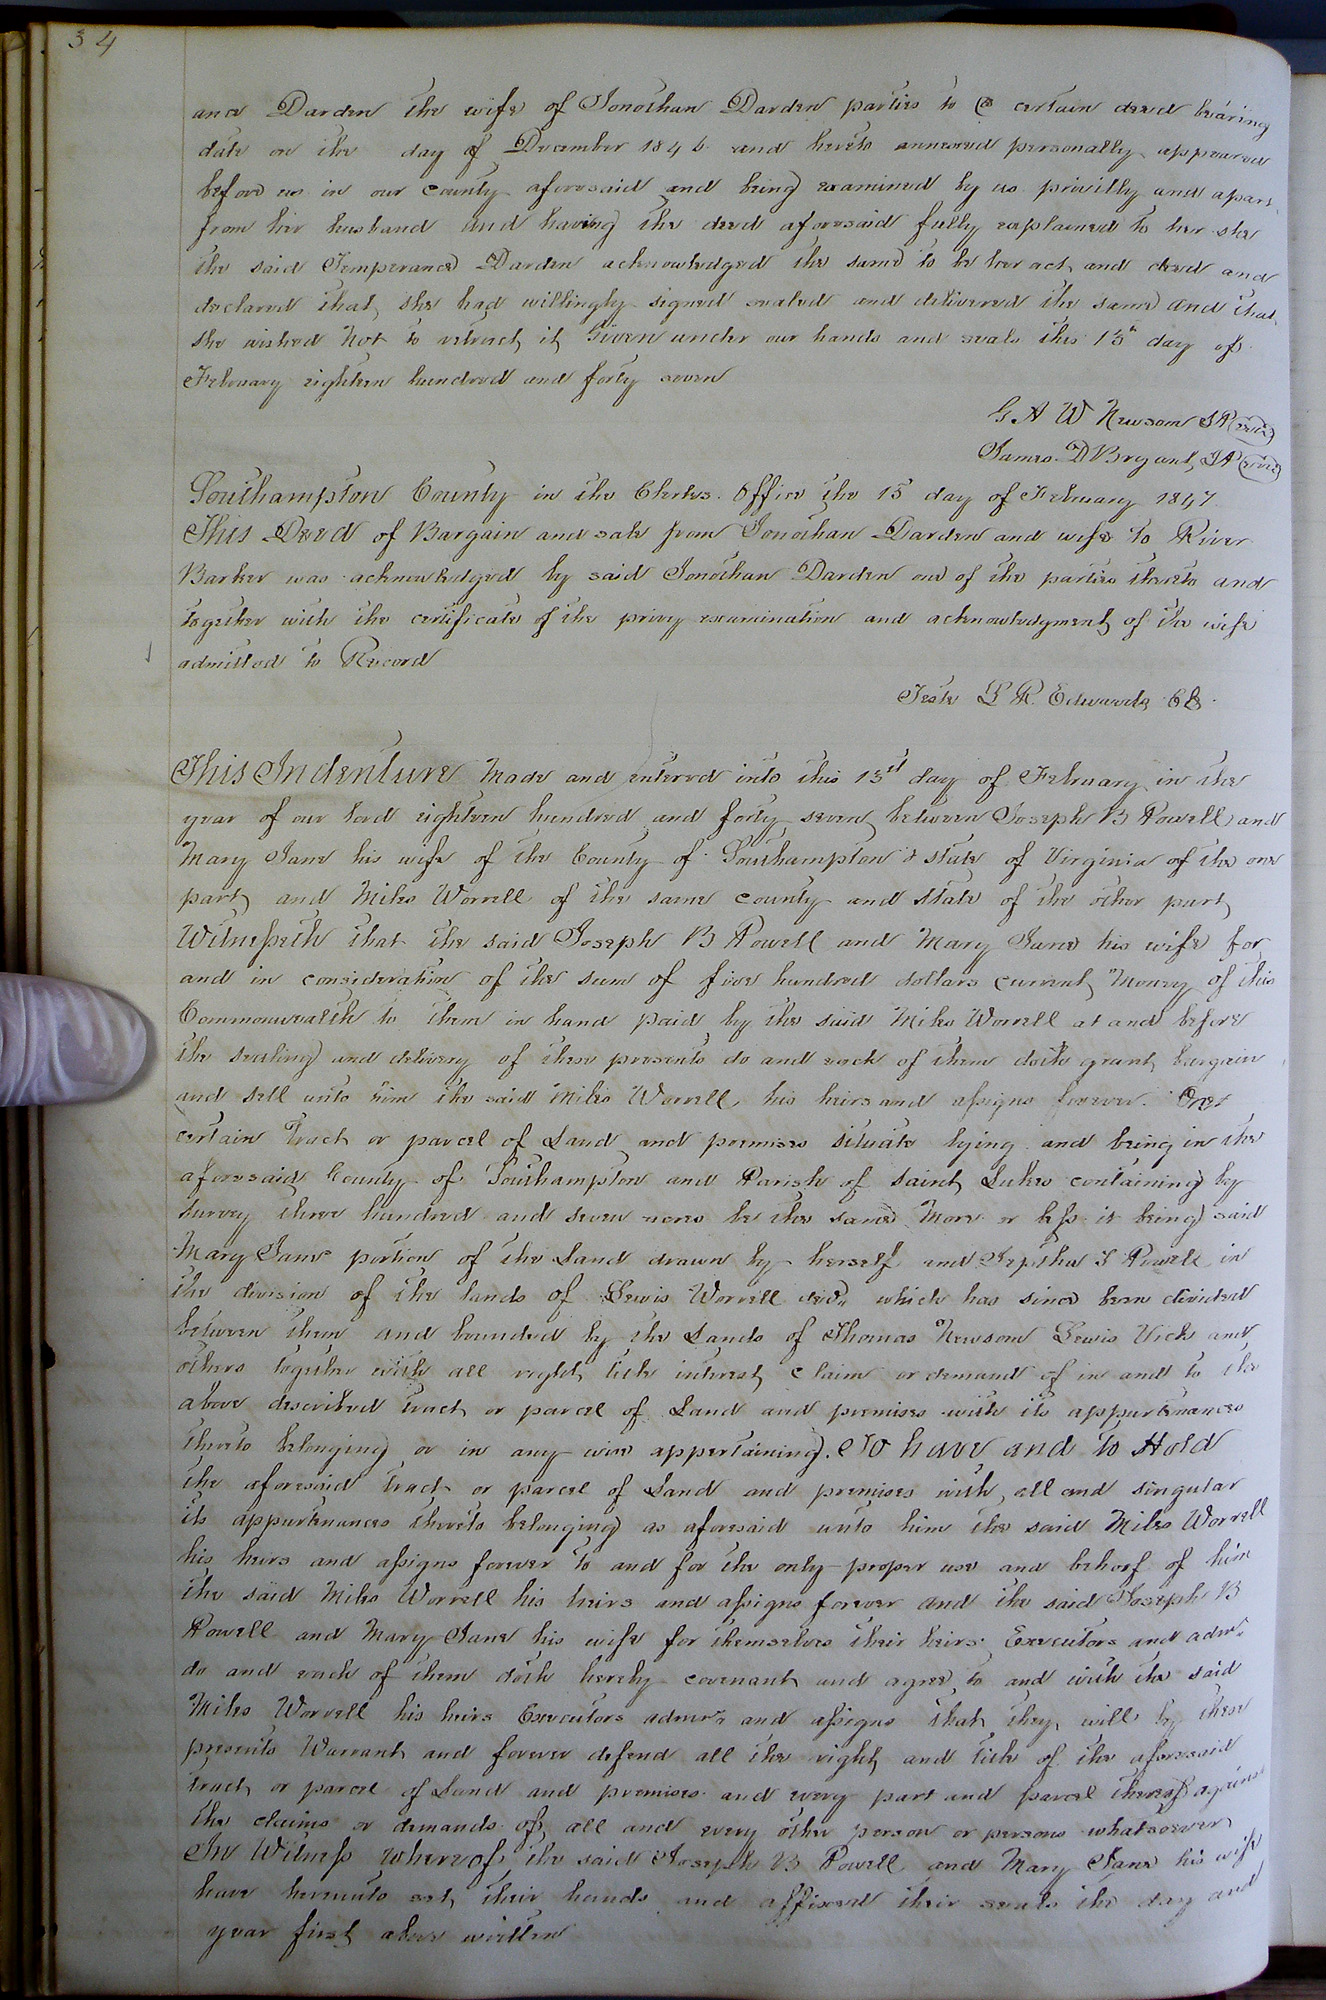 34
ance Darden the wife of Jonathan Darden parties to a certain deed bearing
date on the day of December 1846 and hereto annexed personally appeared
before us in our County aforesaid and being examined by us privilly and apart
from her husband and having the deed aforesaid fully explained to her she
the said Temperance Darden acknowledged the same to be her act and deed and
declared that she had willingly signed sealed and delivered the same and that
she wished not to retract it Given under our hands and seals this 15th day of
February eighteen hundred and forty seven
G A W Newsom JP (seal)
James D Bryant JP (seal)
Southampton County in the Clerks Office the 15 day of February 1847
This Deed of Bargain and sale from Jonathan Darden and wife to River
Barker was acknowledged by said Jonathan Darden one of the parties thereto and
together with the certificate of the privy examination and acknowledgment of the wife
admitted to Record
Teste L R Edwards CC
This Indenture Made and entered into this 13th day of February in the
year of our lord eighteen hundred and forty seven between Joseph B Powell and
Mary Jane his wife of the County of Southampton & state of Virginia of the one
part and Miles Worrell of the same county and state of the other part
Witnesseth that the said Joseph B Powell and Mary Jane his wife for
and in consideration of the sum of five hundred dollars current Money of this
Commonwealth to them in hand paid by the said Miles Worrell at and before
the sealing and delivery of these presents do and each of them doth grant bargain
and sell unto him the said Miles Worrell his heirs and assigns forever. One
certain Tract or parcel of Land and premises situate lying and being in the
aforesaid County of Southampton and Parish of Saint Lukes containing by
survey three hundred and seven acres be the same More or less it being said
Mary Janes portion of the Land drawn by herself and Jeptha J Powell in
the division of the lands of Lewis Worrell decd. which has since been divided
between them and bounded by the Lands of Thomas Newsom Lewis Vick and
others together with all right title interest claim or demand of in and to the
above described tract or parcel of Land and premises with its appurtenances
thereto belonging or in any wise appertaining. To have and to Hold
the aforesaid tract or parcel of Land and premises with all and singular
its appurtenances thereto belonging as aforesaid unto him the said Miles Worrell
his heirs and assigns forever to and for the only proper use and behoof of him
the said Miles Worrell his heirs and assigns forever and the said Joseph B
Powell and Mary Jane his wife for themselves their heirs Executors and admrs
do and each of them doth hereby covenant and agree to and with the said
Miles Worrell his heirs Executors admrs and assigns that they will by these
presents Warrant and forever defend all the right and title of the aforesaid
tract or parcel of Land and premises and every part and parcel thereof against
the claims or demands of all and every other person or persons whatsoever
In Witness whereof the said Joseph B Powell and Mary Jane his wife
have hereunto set their hands and affixed their seals the day and
year first above written